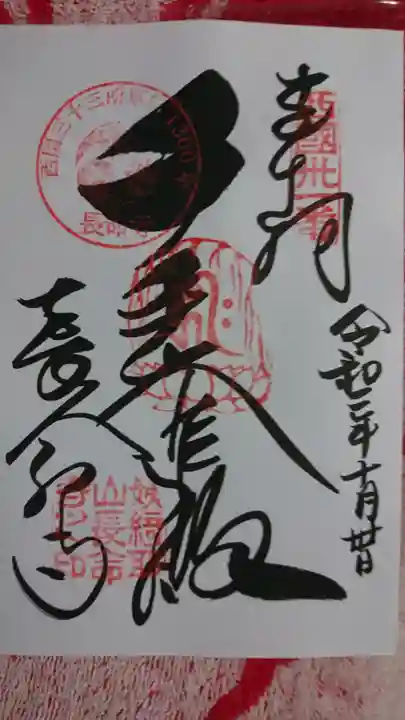 奉拝
西國卅一番
令和二年十月廿日
大悲殿
西国三十三所草創1300年
長命寺
長命寺
姨綺耶山長命寺之印